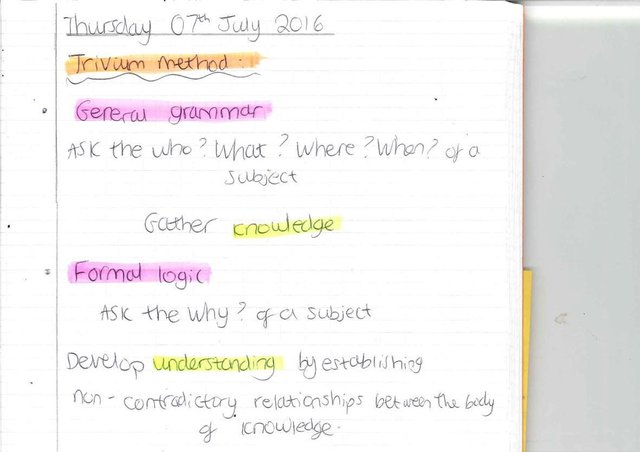 Thursday 07th July 2016
Trivium method.
General grammar
ASK the who? What? Where? When? of a
subject
Gather knowledge
Formal logic
ASK the why? of a subject
Develop understanding by establishing
non-contradictory relationships between the body
of knowledge.